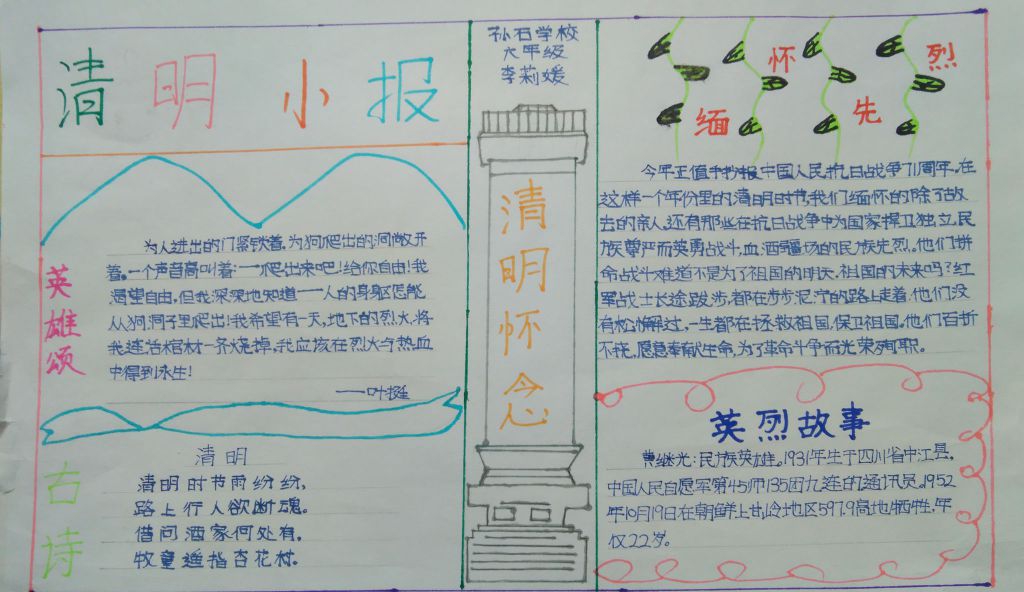 清明小报
英雄颂
为人进出的门紧锁着,为狗爬出的洞敞开
着。一个声音高叫着:——爬出来吧!给你自由!我
渴望自由,但我深深地知道——人的身躯怎能
从狗洞子里爬出!我希望有一天,地下的烈火,将
我连活棺材一齐烧掉,我应该在烈火与热血
中得到永生!
——叶挺
古诗
清明
清明时节雨纷纷,
路上行人欲断魂。
借问酒家何处有,
牧童遥指杏花村。
孙石学校
六年级
李莉媛
清明怀念
缅怀先烈
今年正值中国人民抗日战争71周年。在
这样一个年份里的清明时节,我们缅怀的除了故
去的亲人,还有那些在抗日战争中为国家捍卫独立,民
族尊严而英勇战斗,血洒疆场的民族先烈。他们拼
命战斗难道不是为了祖国的明天,祖国的未来吗?红
军战士长途跋涉,都在步步泥泞的路上走着,他们没
有松懈过,一生都在拯救祖国,保卫祖国。他们百折
不挠,愿意奉献生命,为了革命斗争而光荣殉职。
英烈故事
黄继光:民族英雄。1931年生于四川省中江县,
中国人民自愿军第45师135团九连的通讯员。1952
年10月19日在朝鲜上甘岭地区597.9高地牺牲,年
仅22岁。